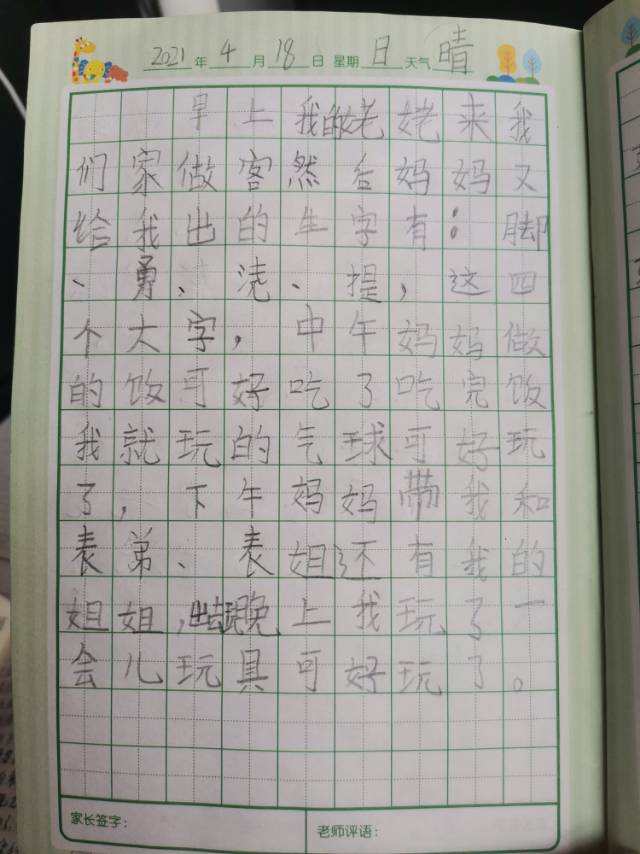 2021年4月18日 星期日 天气晴
早上我的老姥来我
们家做客然后妈妈又
给我出的生字有：脚
、勇、浇、提，这四
个大字，中午妈妈做
的饭可好吃了吃完饭
我就玩的气球可好玩
了，下午妈妈带我和
表弟、表姐还有我的
姐姐，出去玩晚上我玩了一
会儿玩具可好玩了。
家长签字：
老师评语：